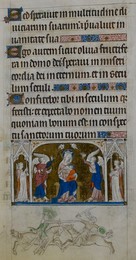 Sed speravit in multitudine di
viciarum suarum: et prevaluit in
vanitate sua
Ego autem sicut oliva fructife
ra in domo dei: speravi in miseri
cordia dei in eternum et in seculum
Confitebor tibi in seculum quia
fecisti: et expectabo nomen tuum
quoniam bonum est in conspe
ctu sanctorum tuorum